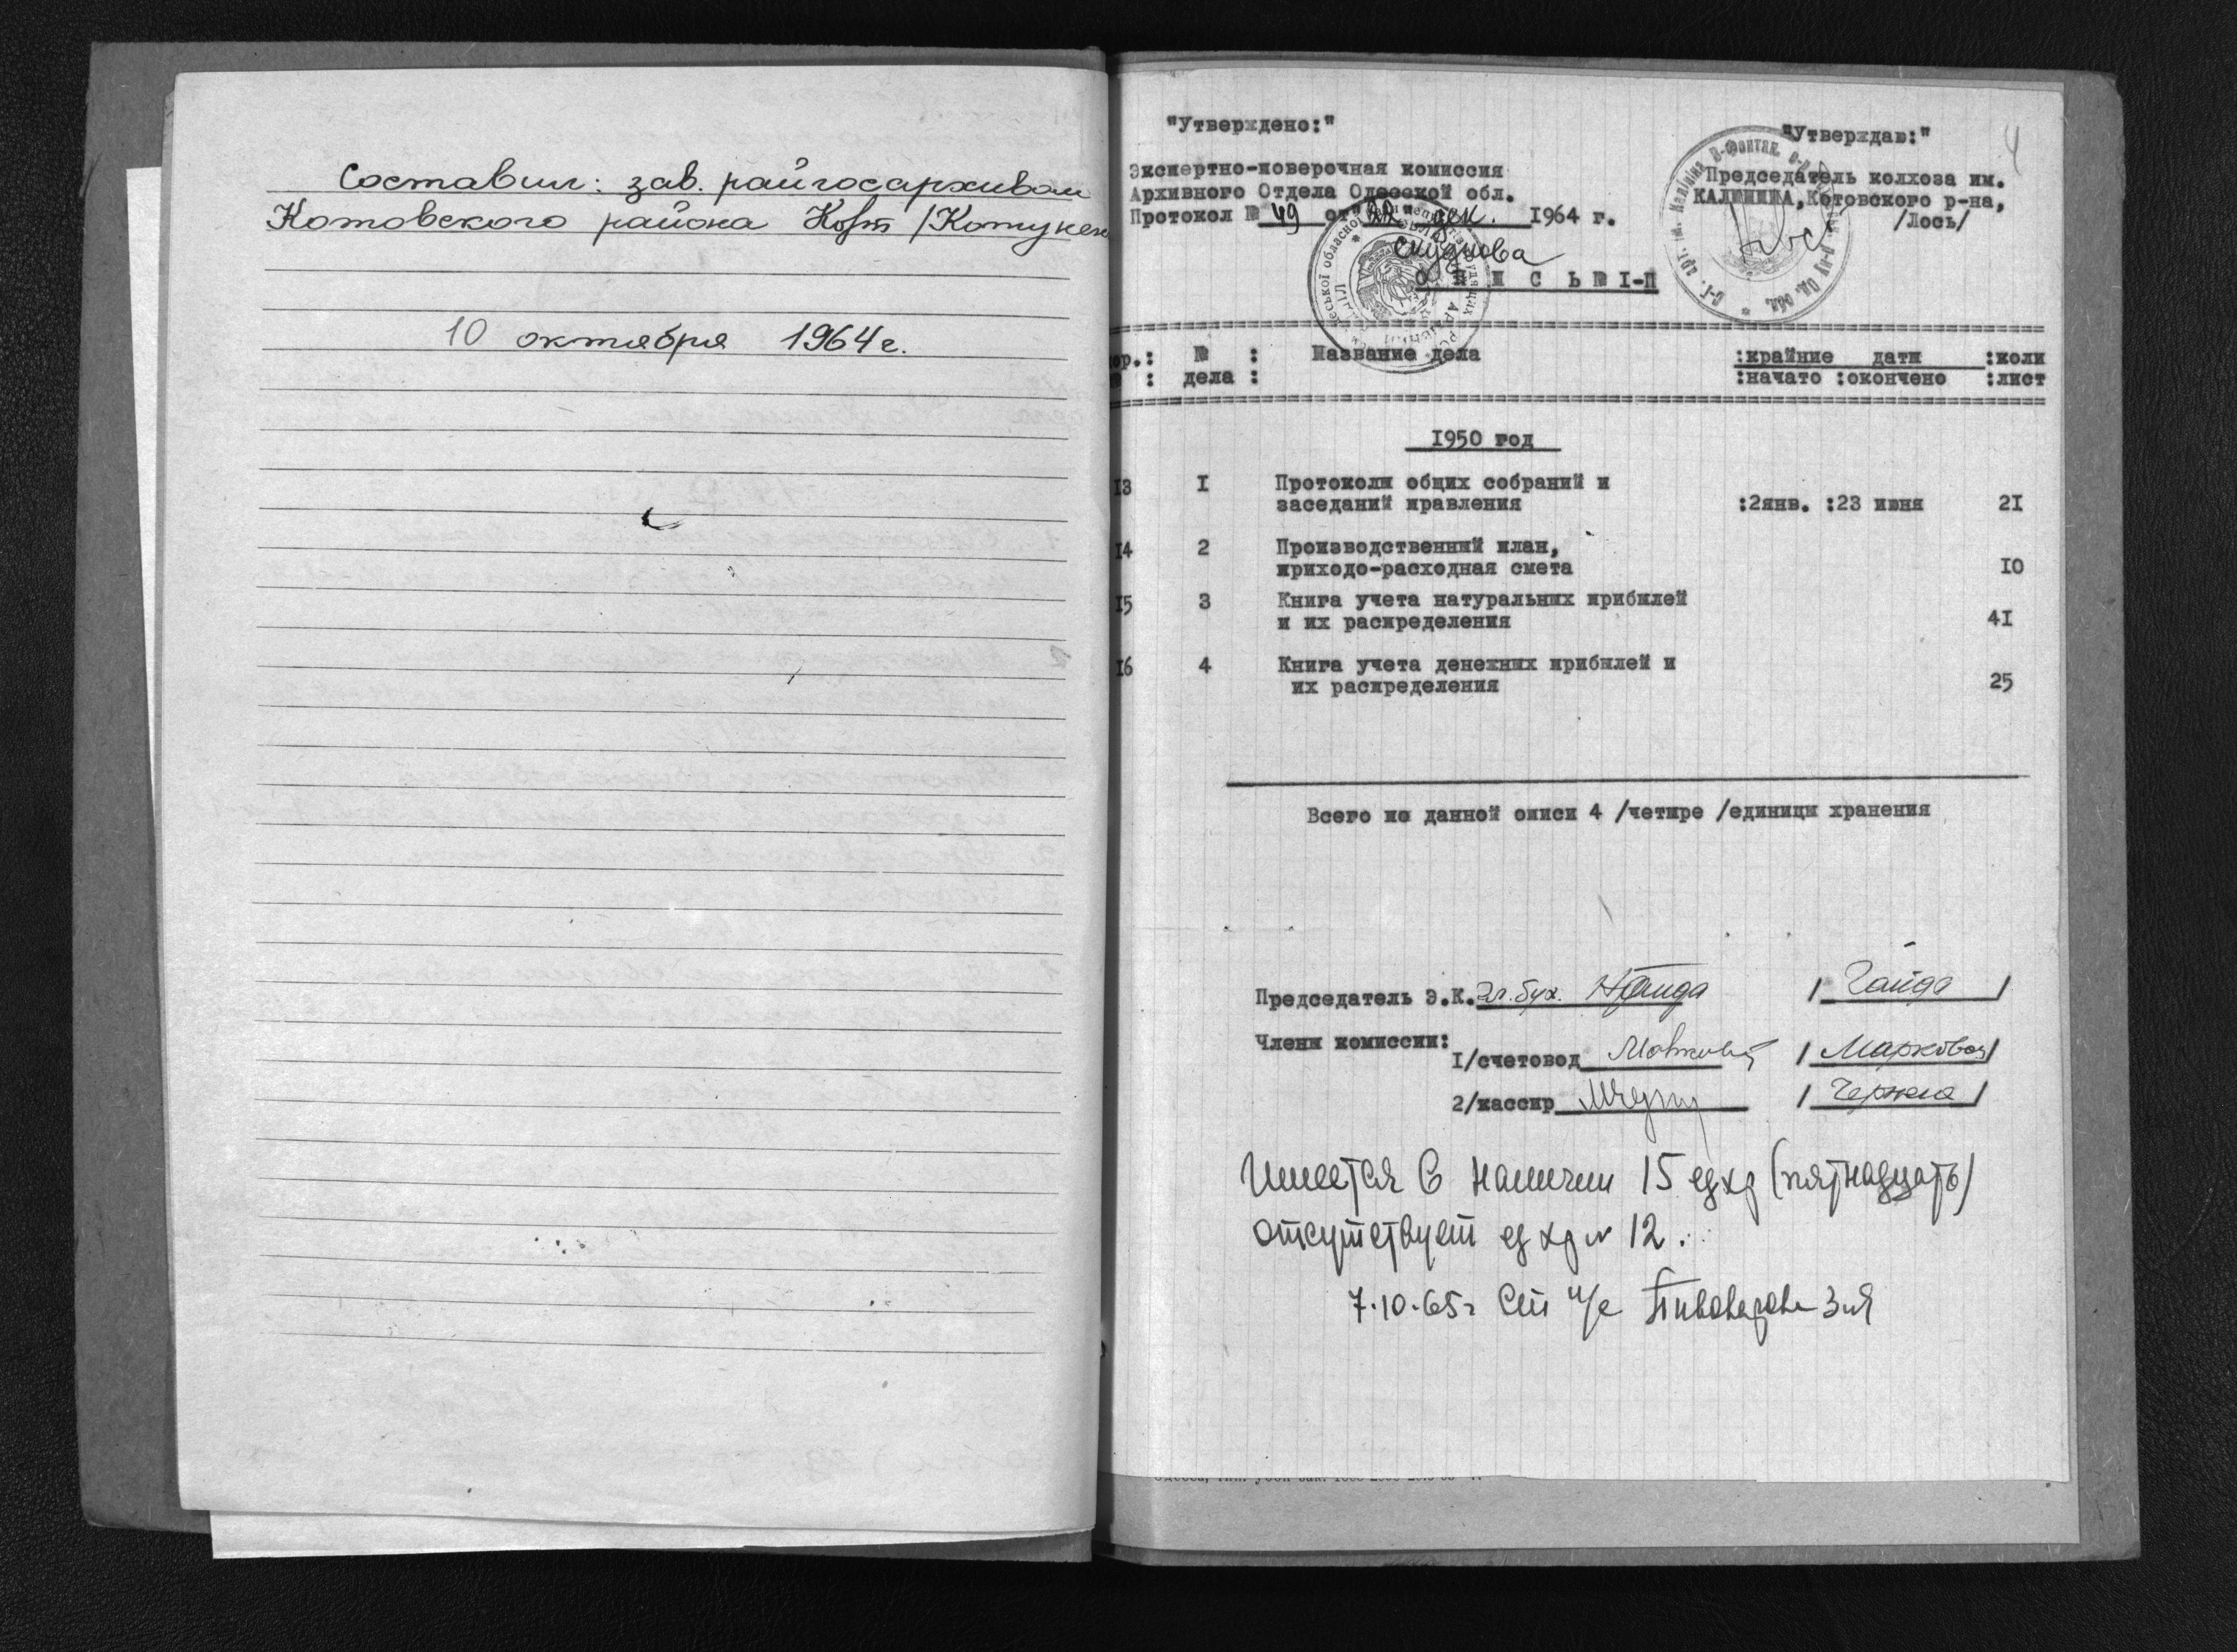 Составил: зав. райгосархивом
Котовского района /Котуне
10 октября 1964 г.
4
"Утверждено:"
Экспертно-поверочная комиссия
Архивного Отдела Одесской обл.
Протокол № 49 от "22" дек. 1964 г.
"Утверждаю:"
Председатель колхоза им.
КАЛИНИНА, Котовского р-на,
/Лось/
О П И С Ь № I-П
ор.: № : Название дела :крайние дати :коли
№ : дела : :начато :окончено :лист
1950 год
13 I Протоколи общих собраний и
заседаний правления :2янв. :23 июня 21
14 2 Производственний план,
приходо-расходная смета 10
15 3 Книга учета натуральних прибилей
и их распределения 41
16 4 Книга учета денежних прибилей и
их распределения 25
Всего по данной описи 4 /четире /единици хранения
Председатель Э.К. Гл. бух. / Гайда /
Члени комиссии:
1/счетовод / Маркова /
2/кассир /
Имеется в наличии 15 ед хр (пятнадцать)
отсутствует ед хр № 12.
7.10.65г Ст н/с